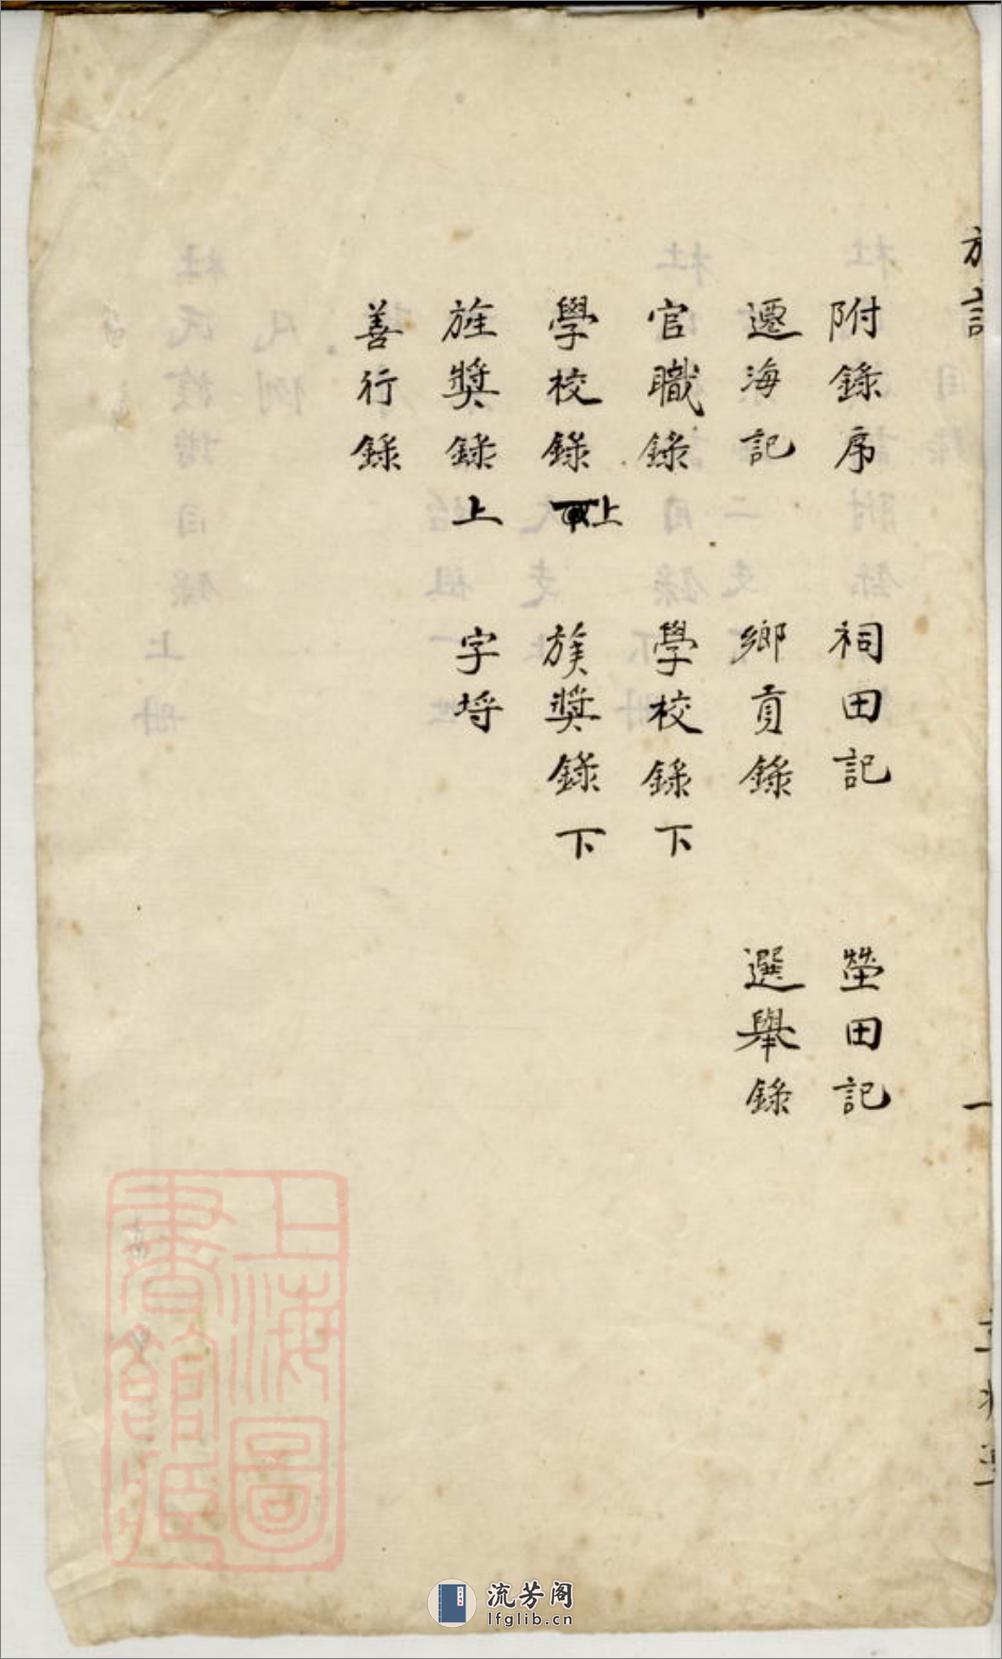 附錄序　祠田記　塋田記
遷海記　鄉貢錄　選舉錄
官職錄　學校錄下
學校錄上　族獎錄下
旌獎錄上　字埓
善行錄
一
上海圖
書館藏
流芳阁
lfglib.cn